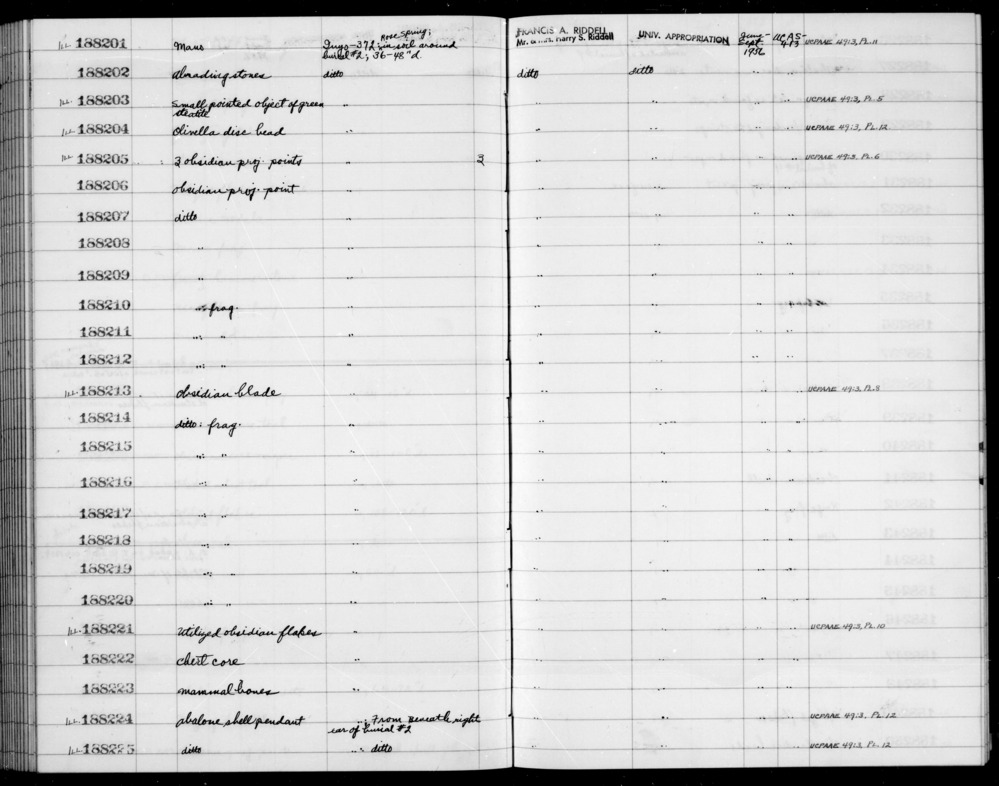 Ill. 188201 Mano Inyo-372; Rose Spring; in soil around burial #2; 36-48" d. FRANCIS A. RIDDELL Mr. & Mrs. Harry S. Riddell UNIV. APPROPRIATION June-Sept. 1956 UCAS-413 UCPAAE 49:3, Pl. 11
188202 Abrading stones ditto ditto ditto " "
Ill. 188203 Small, pointed object of green steatite " " " " " UCPAAE 49:3, Pl. 5
Ill. 188204 Olivella disc bead " " " " " UCPAAE 49:3, Pl. 12
Ill. 188205 3 obsidian proj. points " 3 " " " " UCPAAE 49:3, Pl. 6
188206 obsidian proj. point " " " " "
188207 ditto " " " " "
188208 " " " " " "
188209 " " " " " "
188210 " frag. " " " "
188211 " : " " " " " "
188212 " : " " " " " "
Ill. 188213 obsidian blade " " " " " UCPAAE 49:3, Pl. 8
188214 ditto: frag. " " " " "
188215 " : " " " " " "
188216 " : " " " " " "
188217 " : " " " " " "
188218 " : " " " " " "
188219 " : " " " " " "
188220 " : " " " " " "
Ill. 188221 utilized obsidian flakes " " " " " UCPAAE 49:3, Pl. 10
188222 chert core " " " " "
188223 mammal bones " " " " "
Ill. 188224 abalone shell pendant " ; From beneath right ear of burial #2 " " " " UCPAAE 49:3, Pl. 12
Ill. 188225 ditto " : ditto " " " " UCPAAE 49:3, Pl. 12